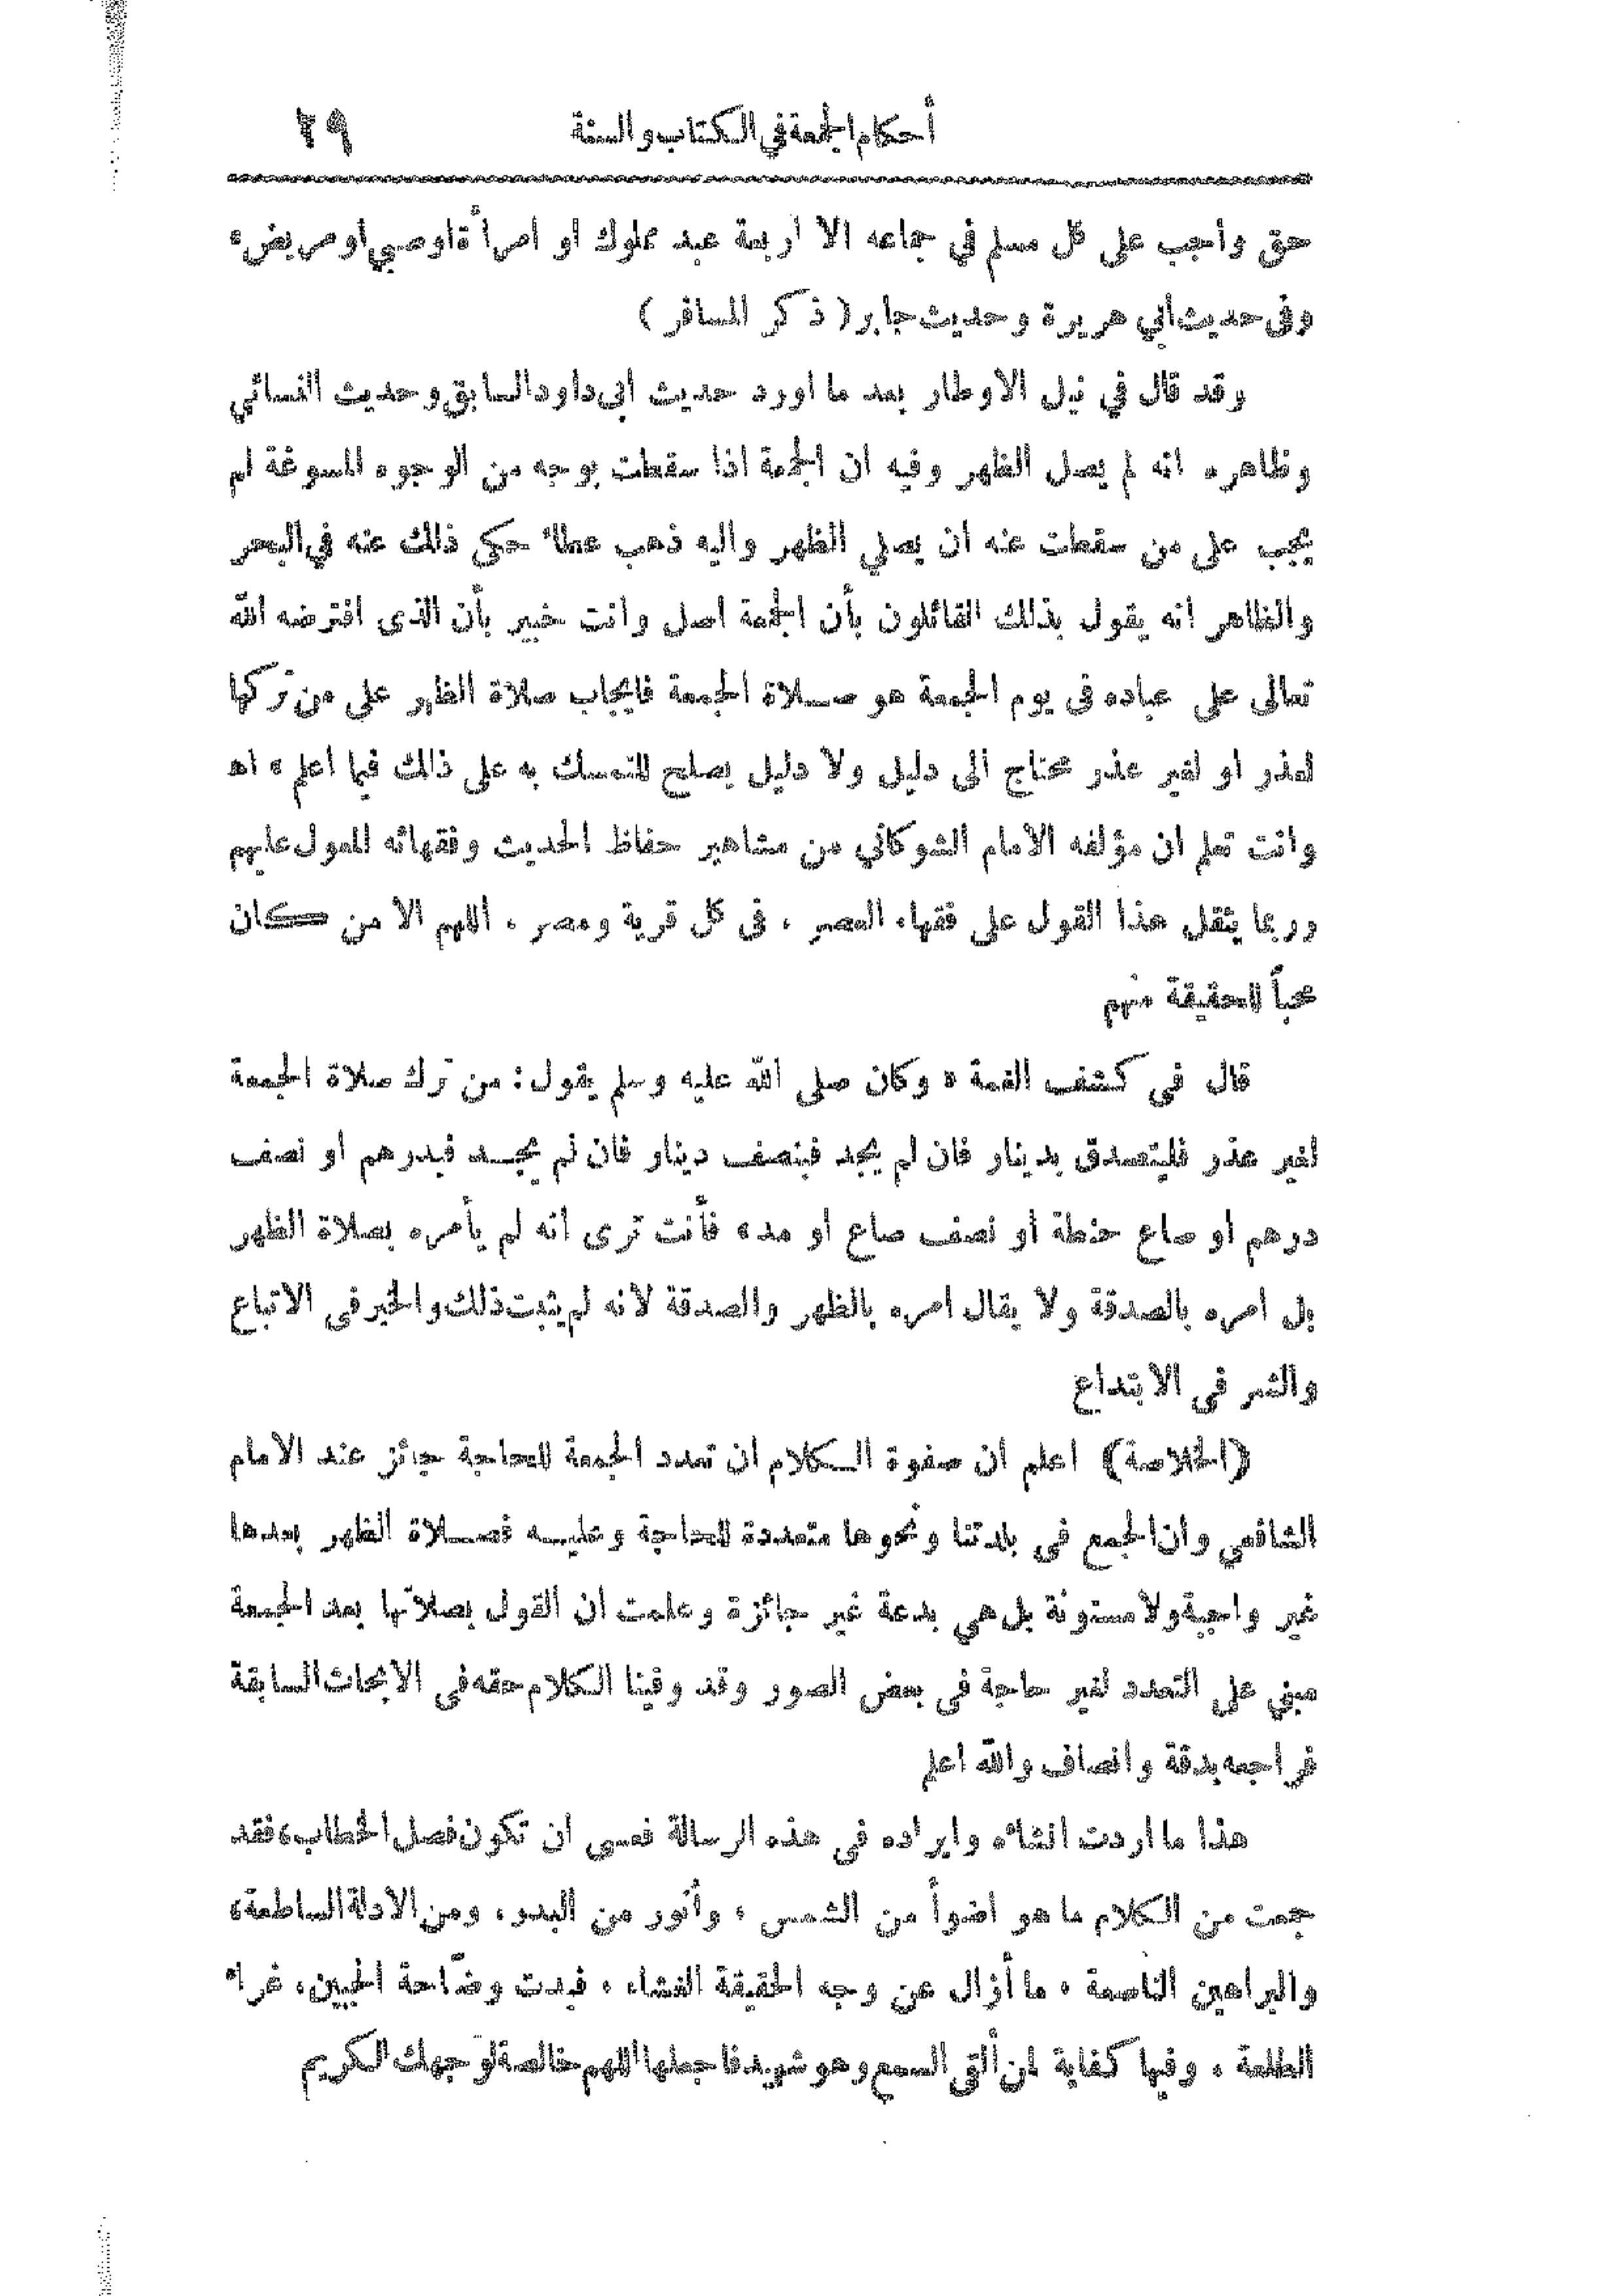 أحكام الجمعة في الكتاب والسنة ٢٩
حق واجب على كل مسلم في جماعه الا أربعة عبد مملوك او امرأة او صبي او مريض،
وفى حديث أبي هريرة وحديث جابر ( ذكر المسافر )
وقد قال في نيل الاوطار بعد ما اورد حديث ابى داود السابق وحديث النسائي
وظاهره انه لم يصل الظهر وفيه ان الجمعة اذا سقطت بوجه من الوجوه المسوغة لم
يجب على من سقطت عنه ان يصلي الظهر واليه ذهب عطاء حكي ذلك عنه في البحر
والظاهر انه يقول بذلك القائلون بأن الجمعة اصل وانت خبير بأن الذى افترضه الله
تعالى على عباده فى يوم الجمعة هو صلاة الجمعة فايجاب صلاة الظهر على من تركها
لعذر او لغير عذر محتاج الى دليل ولا دليل يصلح للتمسك به على ذلك فيما اعلم ، اه
وانت تعلم ان مؤلفه الامام الشوكاني من مشاهير حفاظ الحديث وفقهائه المعول عليهم
وربما يثقل هذا القول على فقهاء العصر ، فى كل قرية ومصر ، اللهم الا من كان
محباً للحقيقة منهم
قال في كشف الغمة « وكان صلى الله عليه وسلم يقول : من ترك صلاة الجمعة
لغير عذر فليتصدق بدينار فان لم يجد فبنصف دينار فان لم يجد فبدرهم او نصف
درهم او صاع حنطة أو نصف صاع أو مد» فأنت ترى انه لم يأمره بصلاة الظهر
بل امره بالصدقة ولا يقال امره بالظهر والصدقة لانه لم يثبت ذلك والخير في الاتباع
والشر في الابتداع
(الخلاصة) اعلم ان صفوة الكلام ان تعدد الجمعة للحاجة جائز عند الامام
الشافعي وان الجمع في بلدتنا ونحوها متعددة للحاجة وعليه فصلاة الظهر بعدها
غير واجبة ولا مسنونة بل هي بدعة غير جائزة وعلمت ان القول بصلاتها بعد الجمعة
مبني على التعدد لغير حاجة فى بعض الصور وقد وفينا الكلام حقه فى الابحاث السابقة
فراجعه بدقة وانصاف والله اعلم
هذا ما اردت انشاءه وايراده في هذه الرسالة فعسى ان تكون فصل الخطاب، فقد
جمعت من الكلام ما هو اضوأ من الشمس ، وأنور من البدر ، ومن الادلة الساطعة،
والبراهين الناصعة ، ما أزال عن وجه الحقيقة الغشاء ، فبدت وضّاحة الجبين، غراء
الطلعة ، وفيها كفاية لمن ألقى السمع وهو شهيد فاجعلها اللهم خالصة لوجهك الكريم